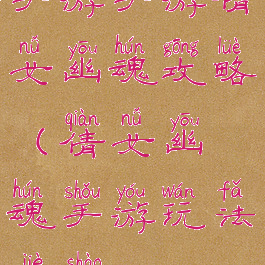 nǚ yōu hún gōng lüè
女幽魂攻略
qiàn nǚ yōu
（倩女幽
hún shǒu yóu wán fǎ
魂手游玩法